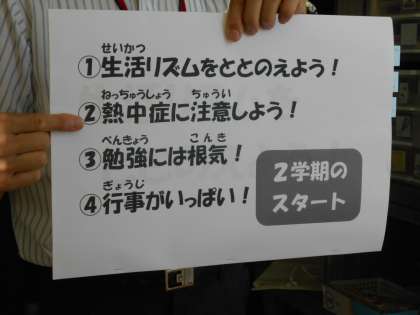 せいかつ
①生活リズムをととのえよう！
ねっちゅうしょう ちゅうい
②熱中症に注意しよう！
べんきょう こんき
③勉強には根気！
ぎょうじ
④行事がいっぱい！
２学期の
スタート